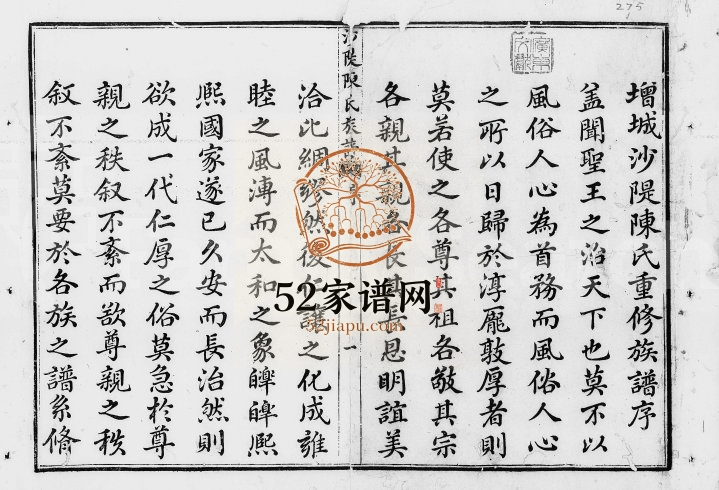 275
增城沙隄陳氏重修族譜序
盖聞聖王之治天下也莫不以
風俗人心為首務而風俗人心
之所以日歸於淳龐敦厚者則
莫若使之各尊其祖各敬其宗
各親其親各長其長恩明誼美
沙隄陳氏族譜
序
一
洽比綢繆然後仁讓之化成雍
睦之風溥而太和之象皥皥熙
熙國家遂已久安而長治然則
欲成一代仁厚之俗莫急於尊
親之秩叙不紊而欲尊親之秩
叙不紊莫要於各族之譜系脩
52家谱网
52jiapu.com